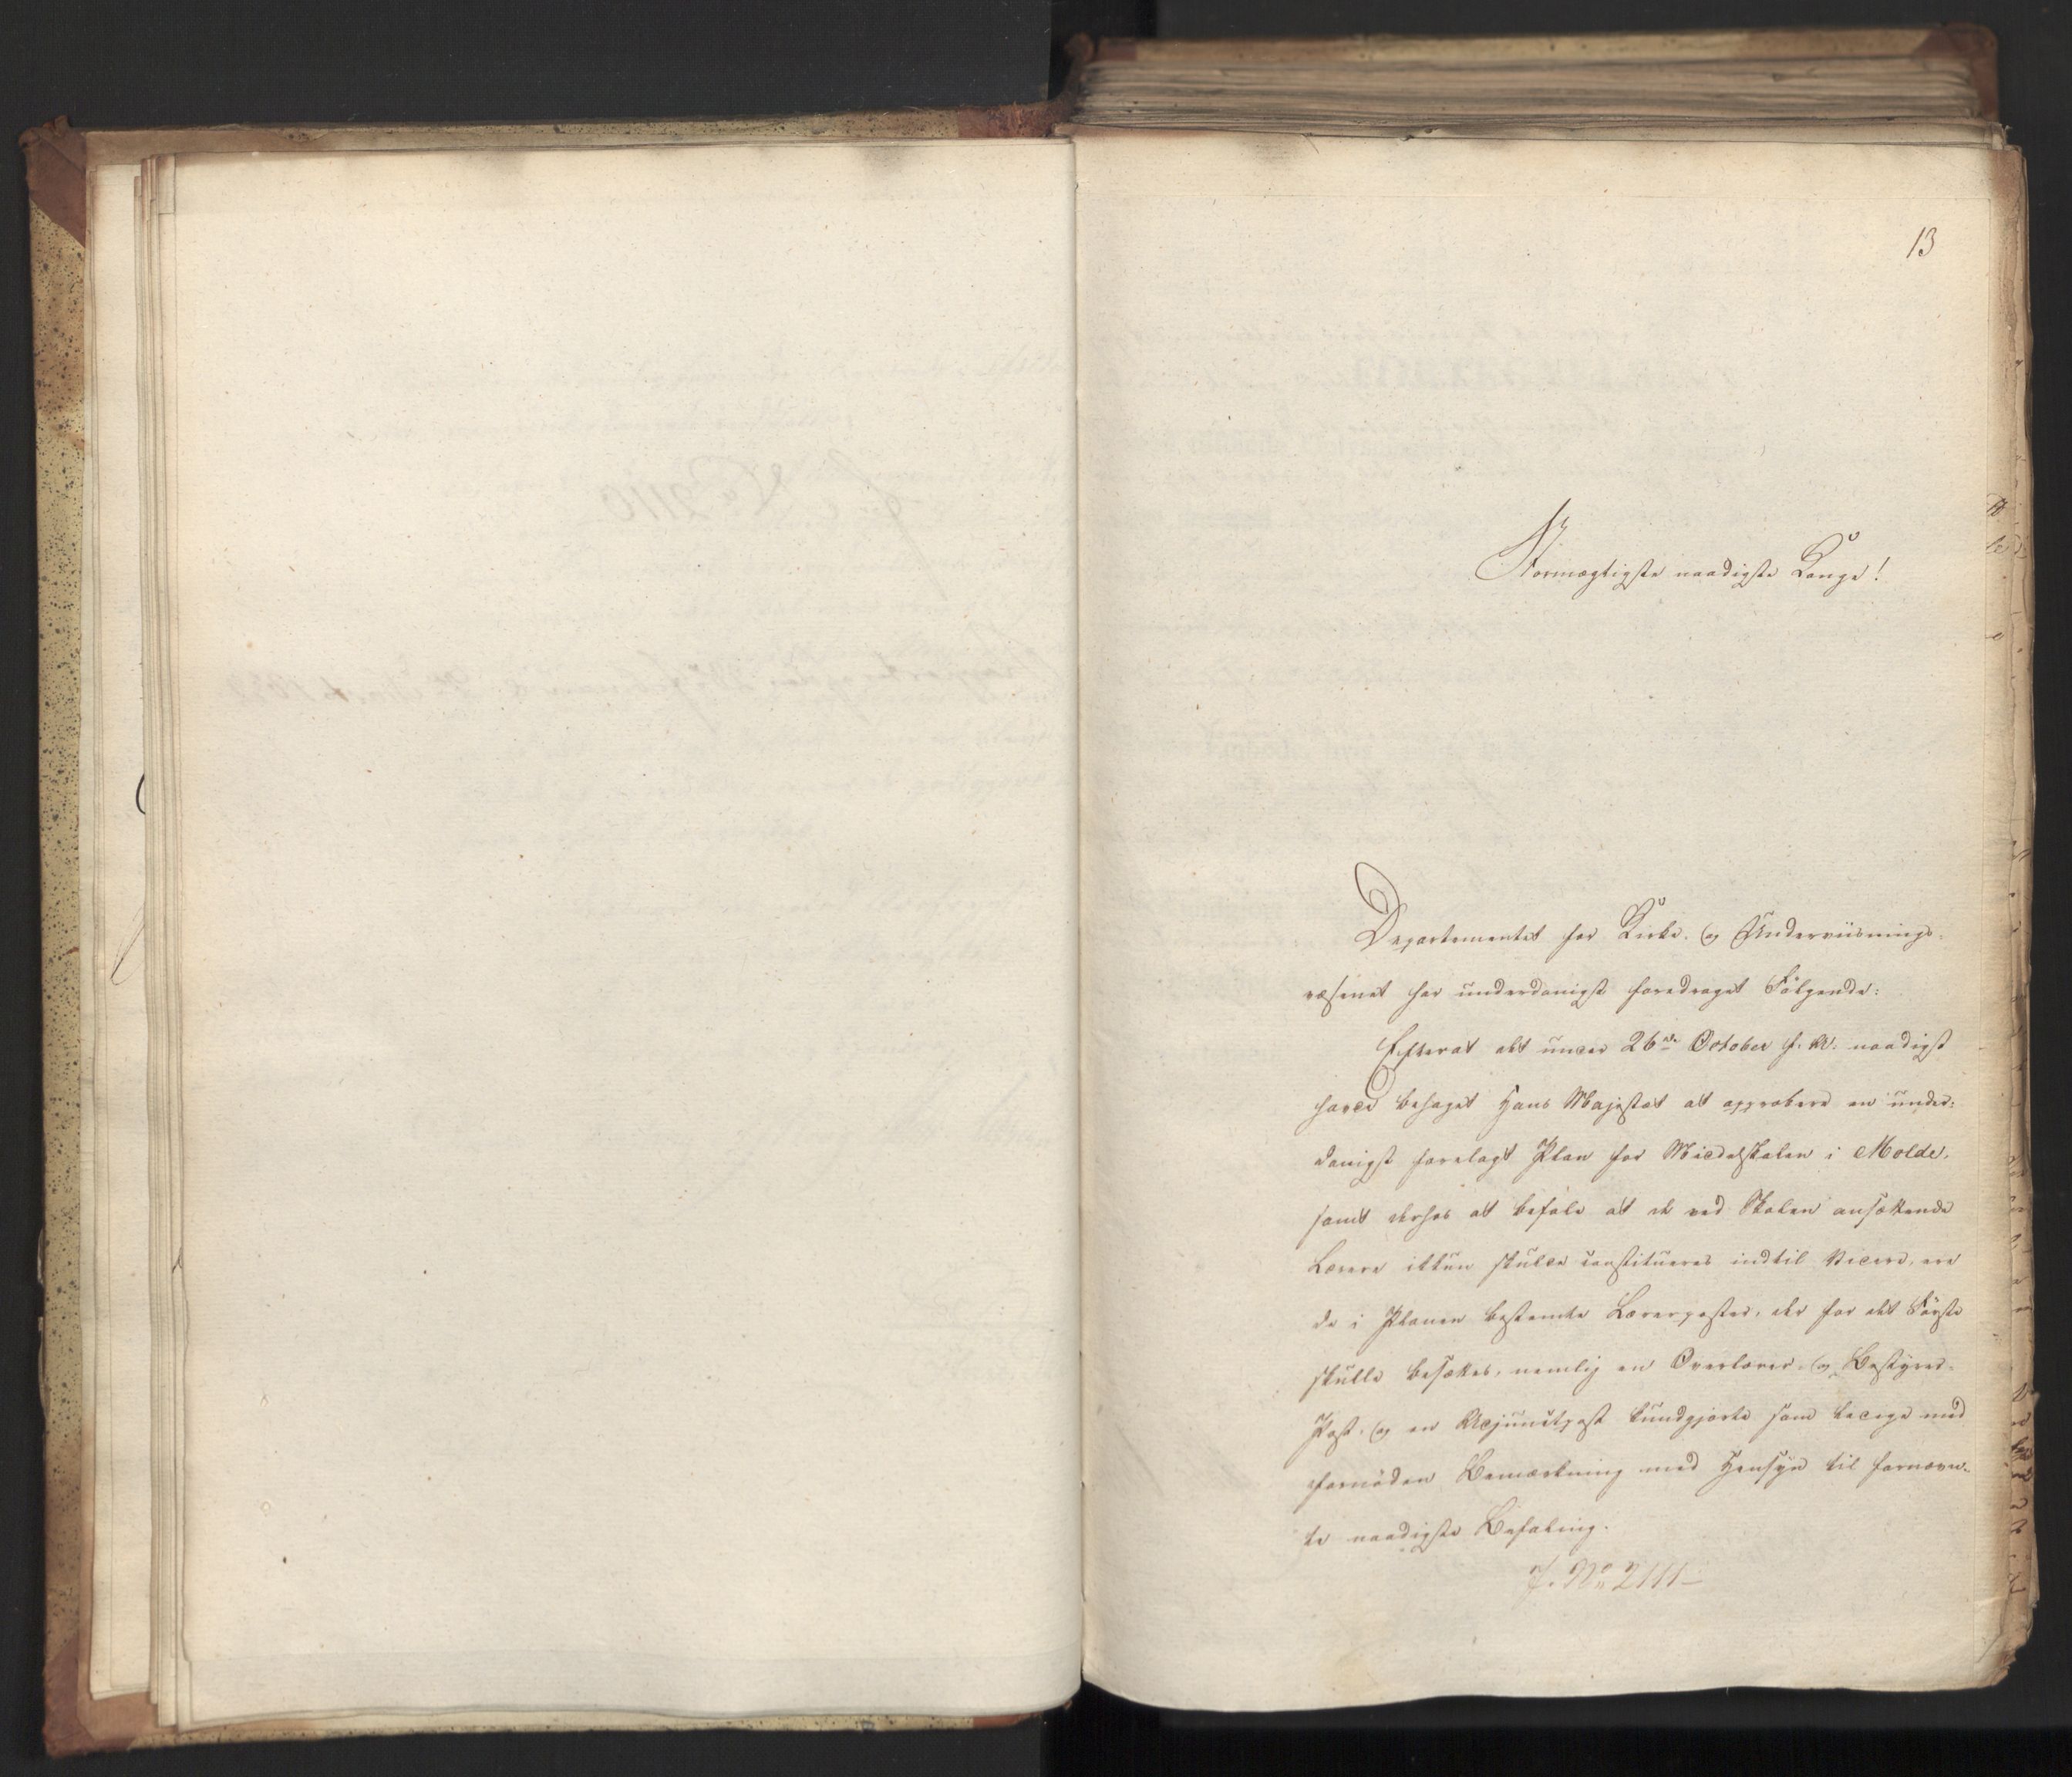 13
Stormægtigste naadigste Konge!
Departementet for Kirke- og Underviisnings-
væsenet har underdanigst foredraget Følgende:
Efterat det under 26de October f. A. naadigst
havde behaget Hans Majestæt at approbere en under-
danigst forelagt Plan for Middelskolen i Molde,
samt derhos at befale at de ved Skolen ansættende
Lærere ikkun skulde constitueres indtil Videre, ere
de i Planen bestemte Lærerposter, der for det Første
skulle besættes, nemlig en Overlærer- og Bestyrer-
Post, og en Adjunctpost kundgjorte som ledige med
fornöden Bemærkning med Hensyn til fornævn-
te naadigste Befaling.
J. No 2111